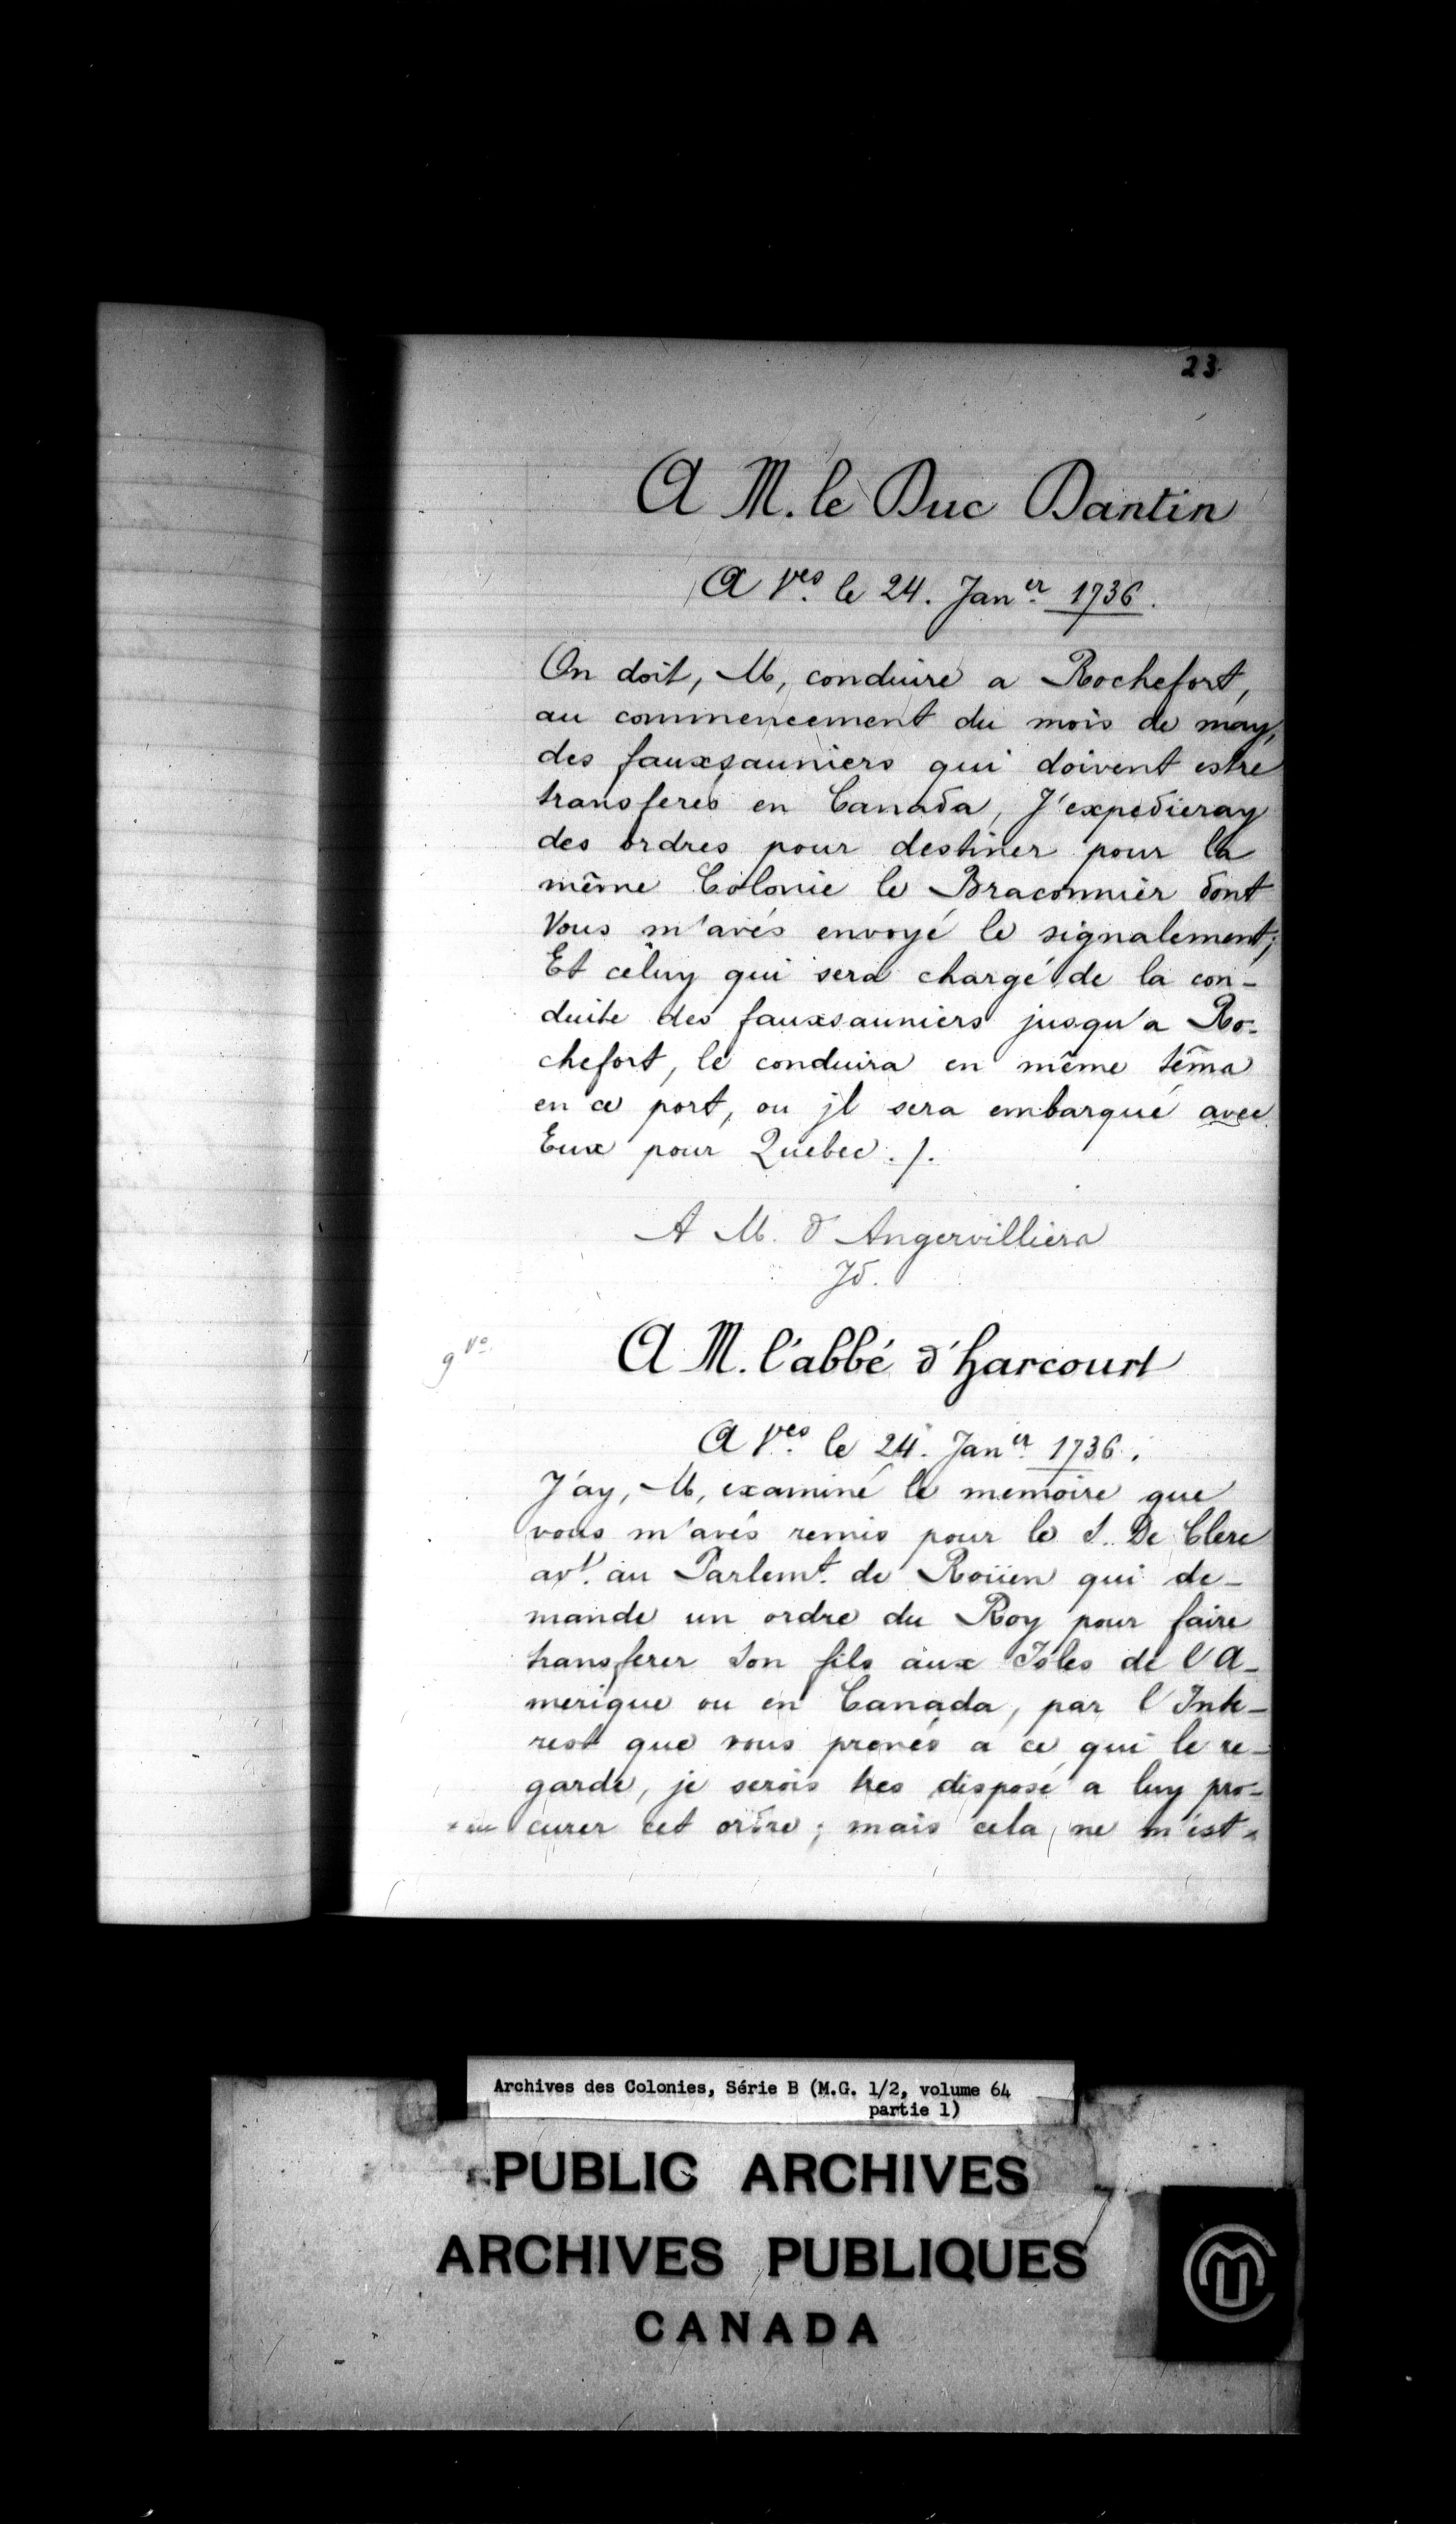 23
A M. le Duc Dantin
A Ves. le 24. Janer. 1736.
On doit, M, conduire a Rochefort,
au commencement du mois de may,
des fauxsauniers qui doivent estre
transferés en Canada, J'expedieray
des ordres pour destiner pour la
même Colonie le Braconnier dont
Vous m'avés envoyé le signalement;
Et celuy qui sera chargé de la con-
duite des fauxsauniers jusqu'a Ro-
chefort, le conduira en même têms
en ce port, ou jl sera embarqué avec
Eux pour Quebec ./.
A M. d'Angervilliers
Jd.
9 vo.
A M. l'abbé d'harcourt
A Ves. le 24. Janer. 1736.
J'ay, M, examiné le memoire que
vous m'avés remis pour le S. De Clerc
avt. au Parlemt. de Roüen qui de-
mande un ordre du Roy pour faire
transferer son fils aux Isles de l'A-
merique ou en Canada, par l'Inte-
rest que vous prenés a ce qui le re-
garde, je serois tres disposé a luy pro-
curer cet ordre; mais cela ne m'est
Archives des Colonies, Série B (M.G. 1/2, volume 64
partie 1)
PUBLIC ARCHIVES
ARCHIVES PUBLIQUES
CANADA